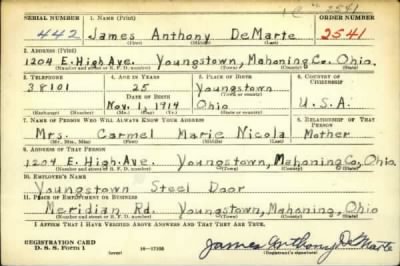 1 C = 2541
SERIAL NUMBER 1. NAME (Print) ORDER NUMBER
442 James Anthony DeMarte 2541
(First) (Middle) (Last)
2. ADDRESS (Print)
1204 E. High Ave. Youngstown, Mahoning Co. Ohio.
(Number and street or R. F. D. number) (Town) (County) (State)
3. TELEPHONE 4. AGE IN YEARS 5. PLACE OF BIRTH 6. COUNTRY OF CITIZENSHIP
38101 25 Youngstown
(Town or county)
DATE OF BIRTH
Nov. 1, 1914 Ohio U.S.A.
(Exchange) (Number) (Mo.) (Day) (Yr.) (State or country)
7. NAME OF PERSON WHO WILL ALWAYS KNOW YOUR ADDRESS 8. RELATIONSHIP OF THAT PERSON
Mrs. Carmel Marie Nicola Mother
(Mr., Mrs., Miss) (First) (Middle) (Last)
9. ADDRESS OF THAT PERSON
1204 E. High Ave. Youngstown, Mahoning Co, Ohio
(Number and street or R. F. D. number) (Town) (County) (State)
10. EMPLOYER'S NAME
Youngstown Steel Door
11. PLACE OF EMPLOYMENT OR BUSINESS
Meridian Rd. Youngstown, Mahoning, Ohio
(Number and street or R. F. D. number) (Town) (County) (State)
I AFFIRM THAT I HAVE VERIFIED ABOVE ANSWERS AND THAT THEY ARE TRUE.
REGISTRATION CARD
D. S. S. Form 1 (over) 16-17105
James Anthony DeMarte
(Registrant's signature)